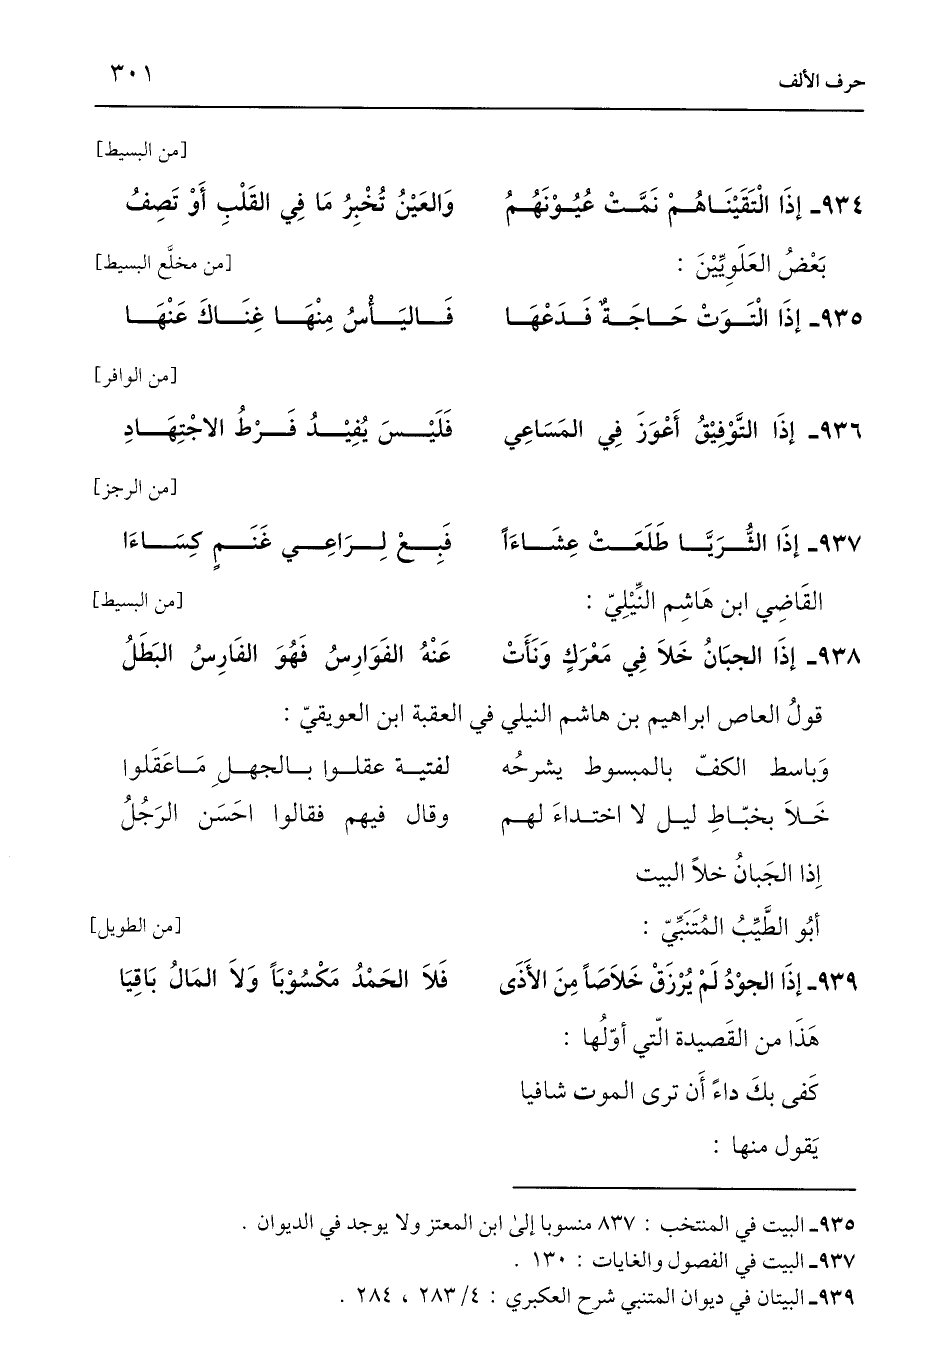 حرف الألف ٣٠١
[من البسيط]
٩٣٤ـ إِذَا الْتَقَيْنَاهُمْ نَمَّتْ عُيُوْنَهُمُ وَالعَيْنُ تُخْبِرُ مَا فِي القَلْبِ أَوْ تَصِفُ
بَعْضُ العَلَوِيِّيْنَ : [من مخلَّع البسيط]
٩٣٥ـ إِذَا الْتَوَتْ حَاجَةٌ فَدَعْهَا فَاليَأْسُ مِنْهَا غِنَاكَ عَنْهَا
[من الوافر]
٩٣٦ـ إِذَا التَّوْفِيْقُ أَعْوَزَ فِي المَسَاعِي فَلَيْسَ يُفِيْدُ فَرْطُ الاجْتِهَادِ
[من الرجز]
٩٣٧ـ إِذَا الثُّرَيَّا طَلَعَتْ عِشَاءَاً فَبِعْ لِرَاعِي غَنَمٍ كِسَاءَا
القَاضِي ابن هَاشِم النِّيْلِيّ : [من البسيط]
٩٣٨ـ إِذَا الجبَانُ خَلاَ فِي مَعْرَكٍ وَنَأَتْ عَنْهُ الفَوَارِسُ فَهُوَ الفَارِسُ البَطَلُ
قولُ العاص ابراهيم بن هاشم النيلي في العقبة ابن العويقيّ :
وَباسط الكفّ بالمبسوط يشرحُه لفتية عقلوا بالجهلِ مَاعَقَلوا
خَلاَ بخبّاطِ ليل لا اختداءَ لهم وقال فيهم فقالوا احسَن الرَجُلُ
إذا الجَبانُ خلاَ البيت
أَبُو الطَّيِّبُ المُتَنَبِّيّ : [من الطويل]
٩٣٩ـ إِذَا الجوْدُ لَمْ يُرْزَقْ خَلاَصَاً مِنَ الأَذَى فَلاَ الحَمْدُ مَكْسُوْبَاً وَلاَ المَالُ بَاقِيَا
هَذَا من القَصِيدة الّتي أوّلُها :
كَفى بكَ داءً أَن ترى الموت شافيا
يَقول منها :
٩٣٥ـ البيت في المنتخب : ٨٣٧ منسوبا إلىٰ ابن المعتز ولا يوجد في الديوان .
٩٣٧ـ البيت في الفصول والغايات : ١٣٠ .
٩٣٩ـ البيتان في ديوان المتنبي شرح العكبري : ٤/ ٢٨٣ ، ٢٨٤ .